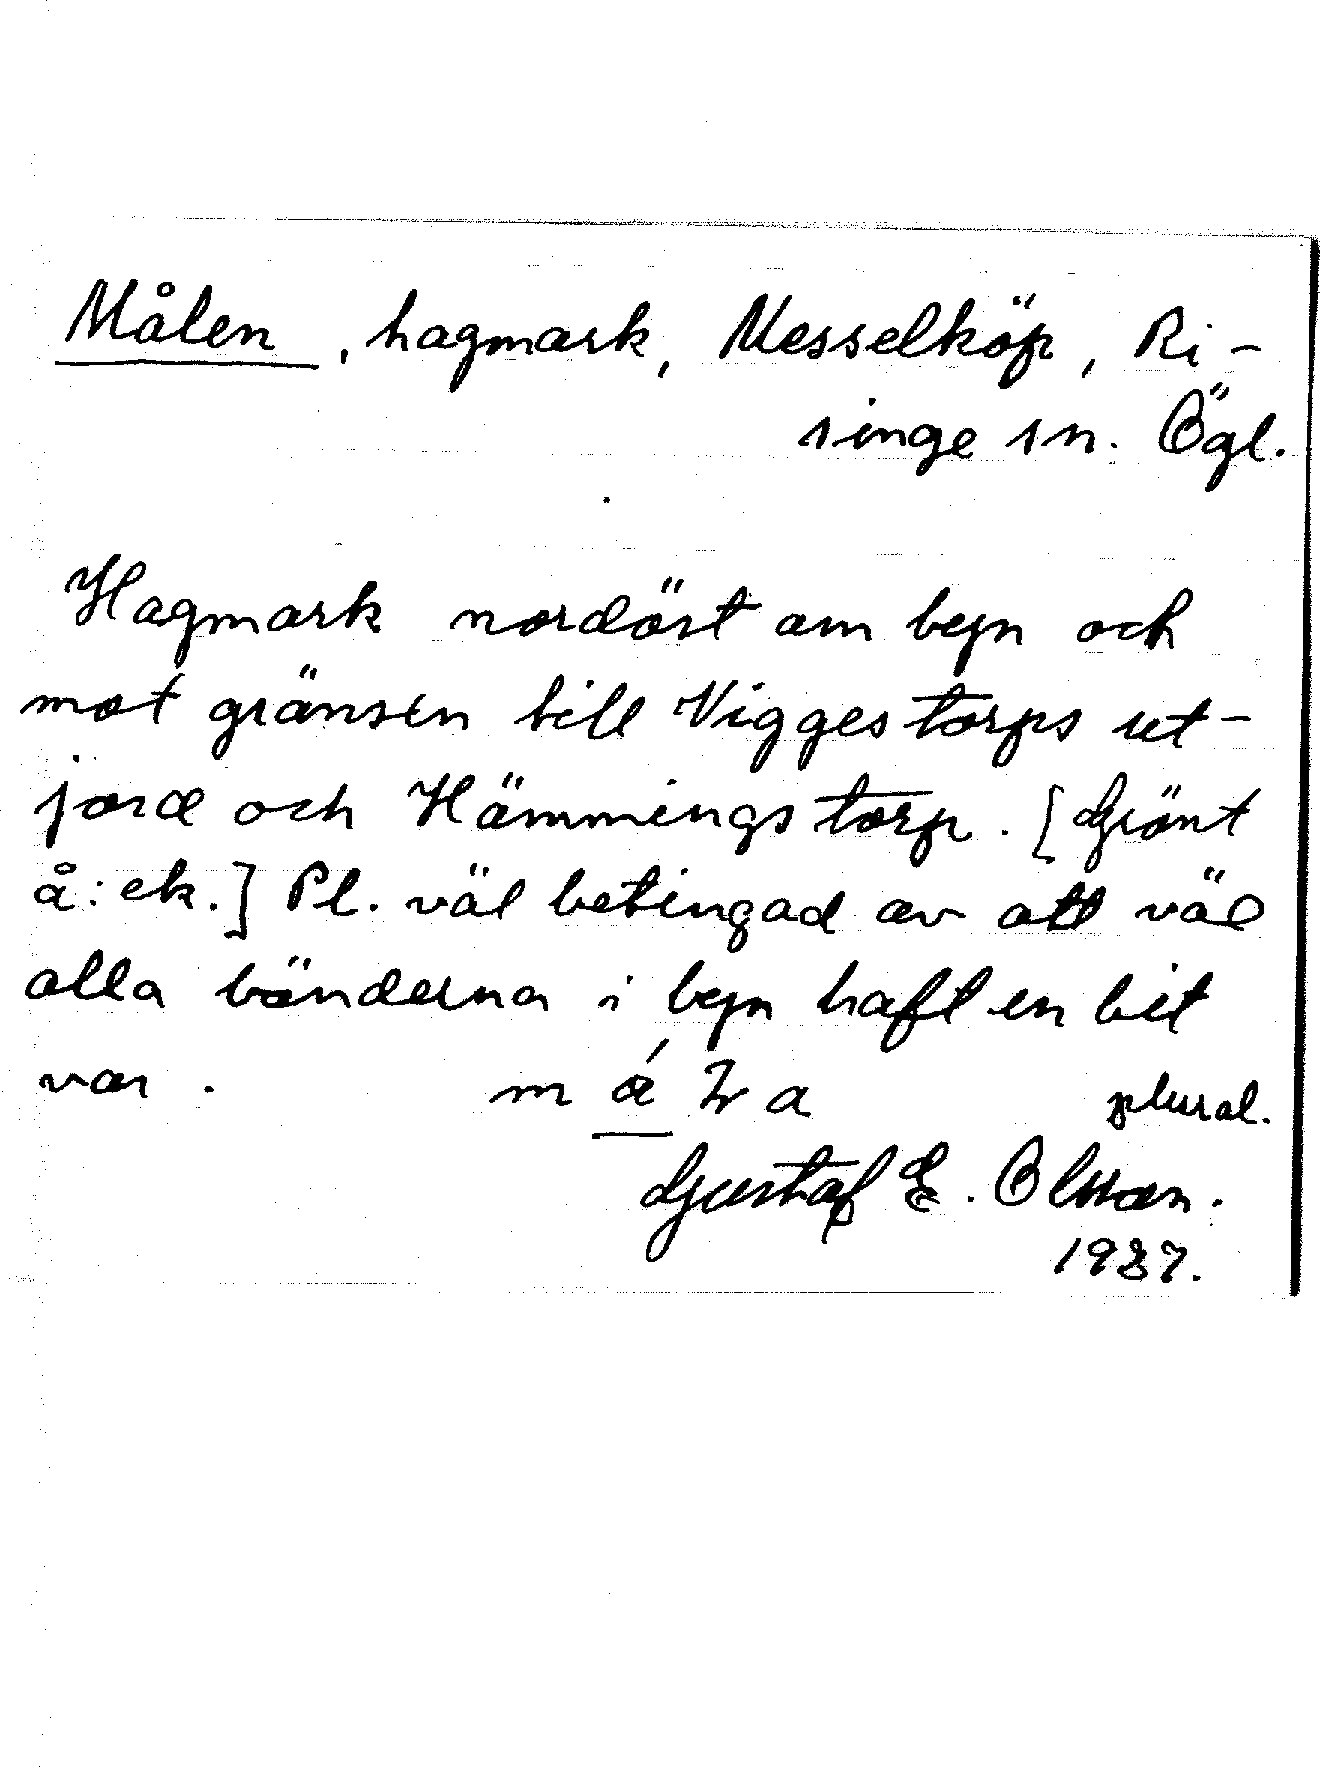 Målen, hagmark, Nesselköp, Ri-
singe sn. Ögl.
Hagmark nordöst om byn och
mot gränsen till Viggestorps ut-
jord och Hämmingstorp. [Grönt
å: ek.] Pl. väl betingad av att väl
alla bönderna i byn haft en bit
var.
plural.
Gustaf E. Olsson.
1937.